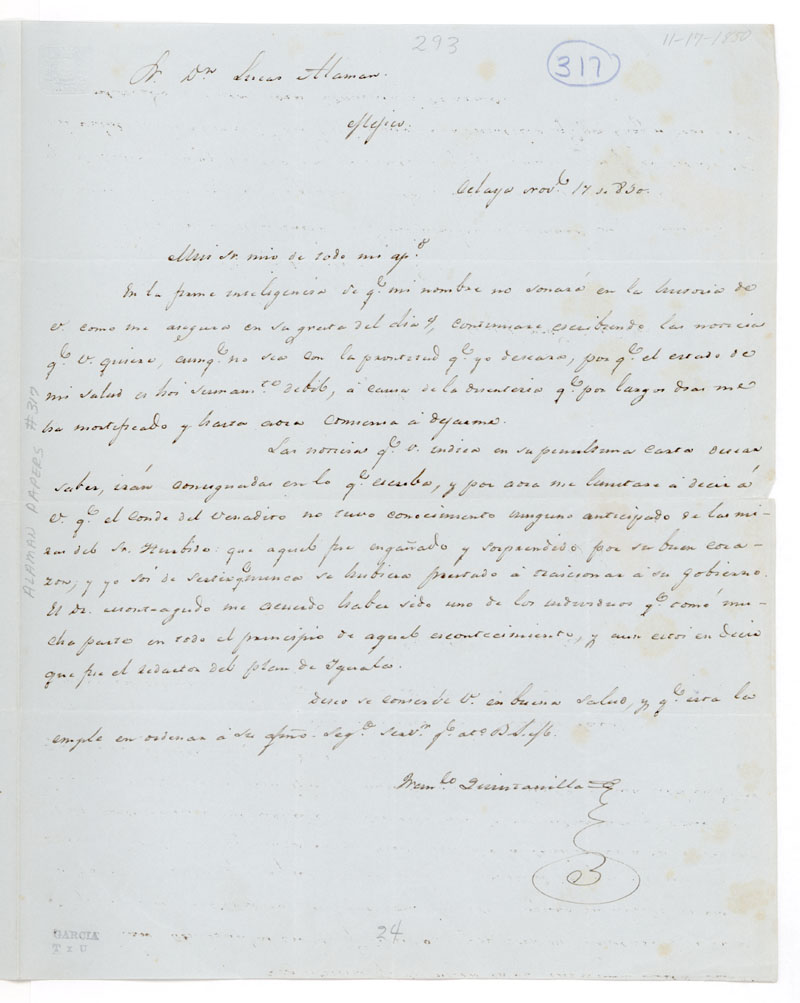 293
317
11-17-1850
Sr. Dn. Lucas Alaman.
Mejico.
Celaya novᵉ 17 1.850.
Mui Sr. mio de todo mi apᵒ
En la firme inteligencia de qᵉ mi nombre no sonará en la historia de
V. como me asegura en su grata del dia 4, continuare escribiendo las noticia
qᵉ V. quiere, aunqᵉ no sea con la prontitud qᵉ yo deseara, por qᵉ el estado de
mi salud es hoi sumamᵗᵉ debil, á causa de la disenteria qᵉ por largos dias me
ha mortificado y hasta aora comensa á dejarme.
Las noticia qᵉ V. indica en su penultima carta desear
saber, irán consignadas en lo qᵉ escriba, y por aora me limitare á decir á
V. qᵉ el Conde del Venadito no tuvo conocimiento ninguno anticipado de las mi-
ras del Sr. Iturbide: que aquel fue engañado y sorprendido por su buen cora-
zon; y yo soi de sentir qᵉ nunca se hubiera prestado á traicionar á su Gobierno.
El Dr. Monteagudo me acuerdo haber sido uno de los individuos qᵉ tomó mu-
cha parte en todo el principio de aquel acontecimiento, y aun estoi en decir
que fue el redactor del plan de Iguala.
Deseo se conserve V. en buena salud, y qᵉ esta la
emple en ordenar á su afmo. Segᵒ servᵒʳ qᵉ atᵒ B.S.M.
Franᶜᵒ Quintanilla
ALAMAN PAPERS #317
GARCIA
T x U
24